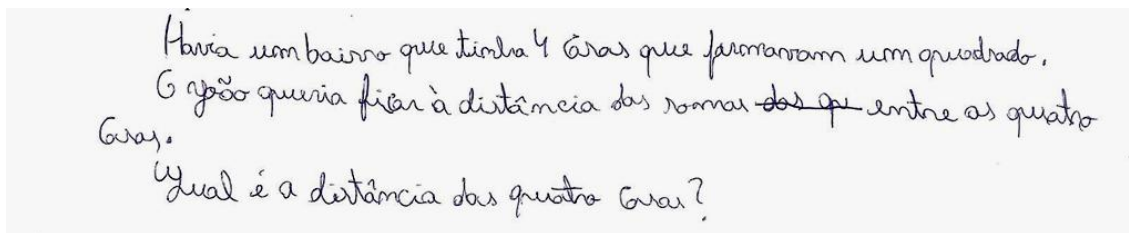 Havia um bairro que tinha 4 casas que formavam um quadrado.
O João queria ficar à distância das somas dos qu entre as quatro
casas.
Qual é a distância das quatro casas?